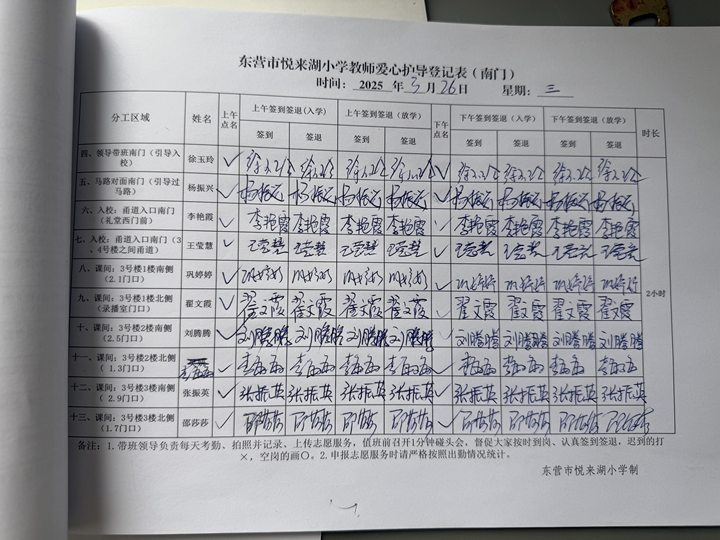 东营市悦来湖小学教师爱心护导登记表（南门）
时间： 2025 年 3 月 26 日 星期： 三
分工区域 姓名 上午点名 上午签到签退(入学) 上午签到签退（放学） 下午点名 下午签到签退（入学） 下午签到签退（放学） 时长
签到 签退 签到 签退 签到 签退 签到 签退
四、领导带班南门（引导入校） 徐玉玲 ✓ 徐玉玲 徐玉玲 徐玉玲 徐玉玲 ✓ 徐玉玲 徐玉玲 徐玉玲 徐玉玲
五、马路对面南门（引导过马路） 杨振兴 ✓ 杨振兴 杨振兴 杨振兴 杨振兴 ✓ 杨振兴 杨振兴 杨振兴 杨振兴
六、入校：甬道入口南门（礼堂西门前） 李艳霞 ✓ 李艳霞 李艳霞 李艳霞 李艳霞 ✓ 李艳霞 李艳霞 李艳霞 李艳霞
七、入校：甬道入口南门（3、4号楼之间甬道） 王莹慧 ✓ 王莹慧 王莹慧 王莹慧 王莹慧 ✓ 王莹慧 王莹慧 王莹慧 王莹慧
八、课间：3号楼1楼南侧（2.1门口） 巩婷婷 ✓ 巩婷婷 巩婷婷 巩婷婷 巩婷婷 ✓ 巩婷婷 巩婷婷 巩婷婷 巩婷婷 2小时
九、课间：3号楼1楼北侧（录播室门口） 翟文霞 ✓ 翟文霞 翟文霞 翟文霞 翟文霞 ✓ 翟文霞 翟文霞 翟文霞 翟文霞
十、课间：3号楼2楼南侧（2.5门口） 刘腾腾 ✓ 刘腾腾 刘腾腾 刘腾腾 刘腾腾 ✓ 刘腾腾 刘腾腾 刘腾腾 刘腾腾
十一、课间：3号楼2楼北侧（1.3门口） ✓ ✓
十二、课间：3号楼3楼南侧（2.9门口） 张振英 ✓ 张振英 张振英 张振英 张振英 ✓ 张振英 张振英 张振英 张振英
十三、课间：3号楼3楼北侧（1.7门口） 邵莎莎 ✓ 邵莎莎 邵莎莎 邵莎莎 邵莎莎 ✓ 邵莎莎 邵莎莎 邵莎莎 邵莎莎
备注：1.带班领导负责每天考勤、拍照并记录、上传志愿服务，值班前召开1分钟碰头会，督促大家按时到岗、认真签到签退，迟到的打
×，空岗的画〇。2.申报志愿服务时请严格按照出勤情况统计。
东营市悦来湖小学制